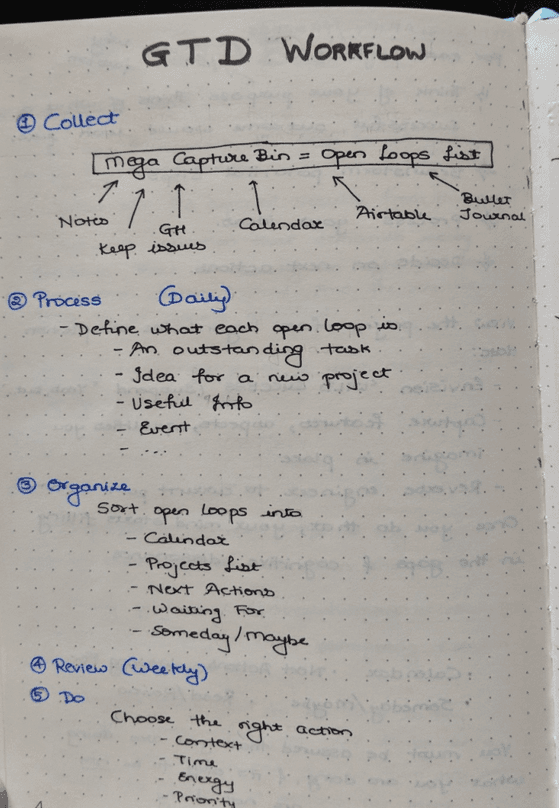 GTD WORKFLOW
① Collect
Mega Capture Bin = Open Loops List
Notes
Keep
GH issues
Calendar
Airtable
Bullet Journal
② Process (Daily)
- Define what each open loop is
- An outstanding task
- Idea for a new project
- Useful Info
- Event
- ....
③ Organize
Sort open loops into
- Calendar
- Projects List
- Next Actions
- Waiting For
- Someday/Maybe
④ Review (Weekly)
⑤ Do
Choose the right action
- Context
- Time
- Energy
- Priority